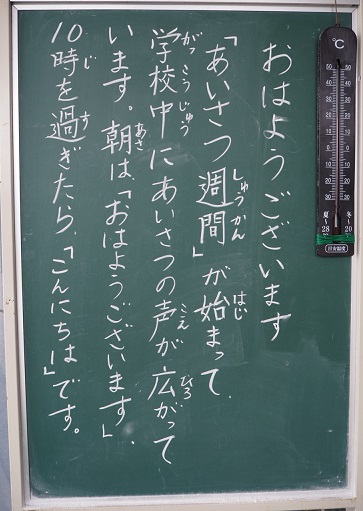 おはようございます
「あいさつ週間」が始まって、
学校中にあいさつの声が広がって
います。朝は、「おはようございます」、
10時を過ぎたら、「こんにちは」です。
しゅうかん
はじ
がっこうじゅう
こえ
ひろ
あさ
じ
す
℃
50 50
40 40
30 30
20 20
10 10
0 0
10 10
20 20
30 30
夏~28
冬~20
目安温度